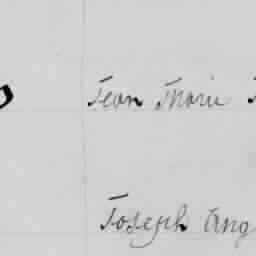 Jean Marie
Joseph Ang